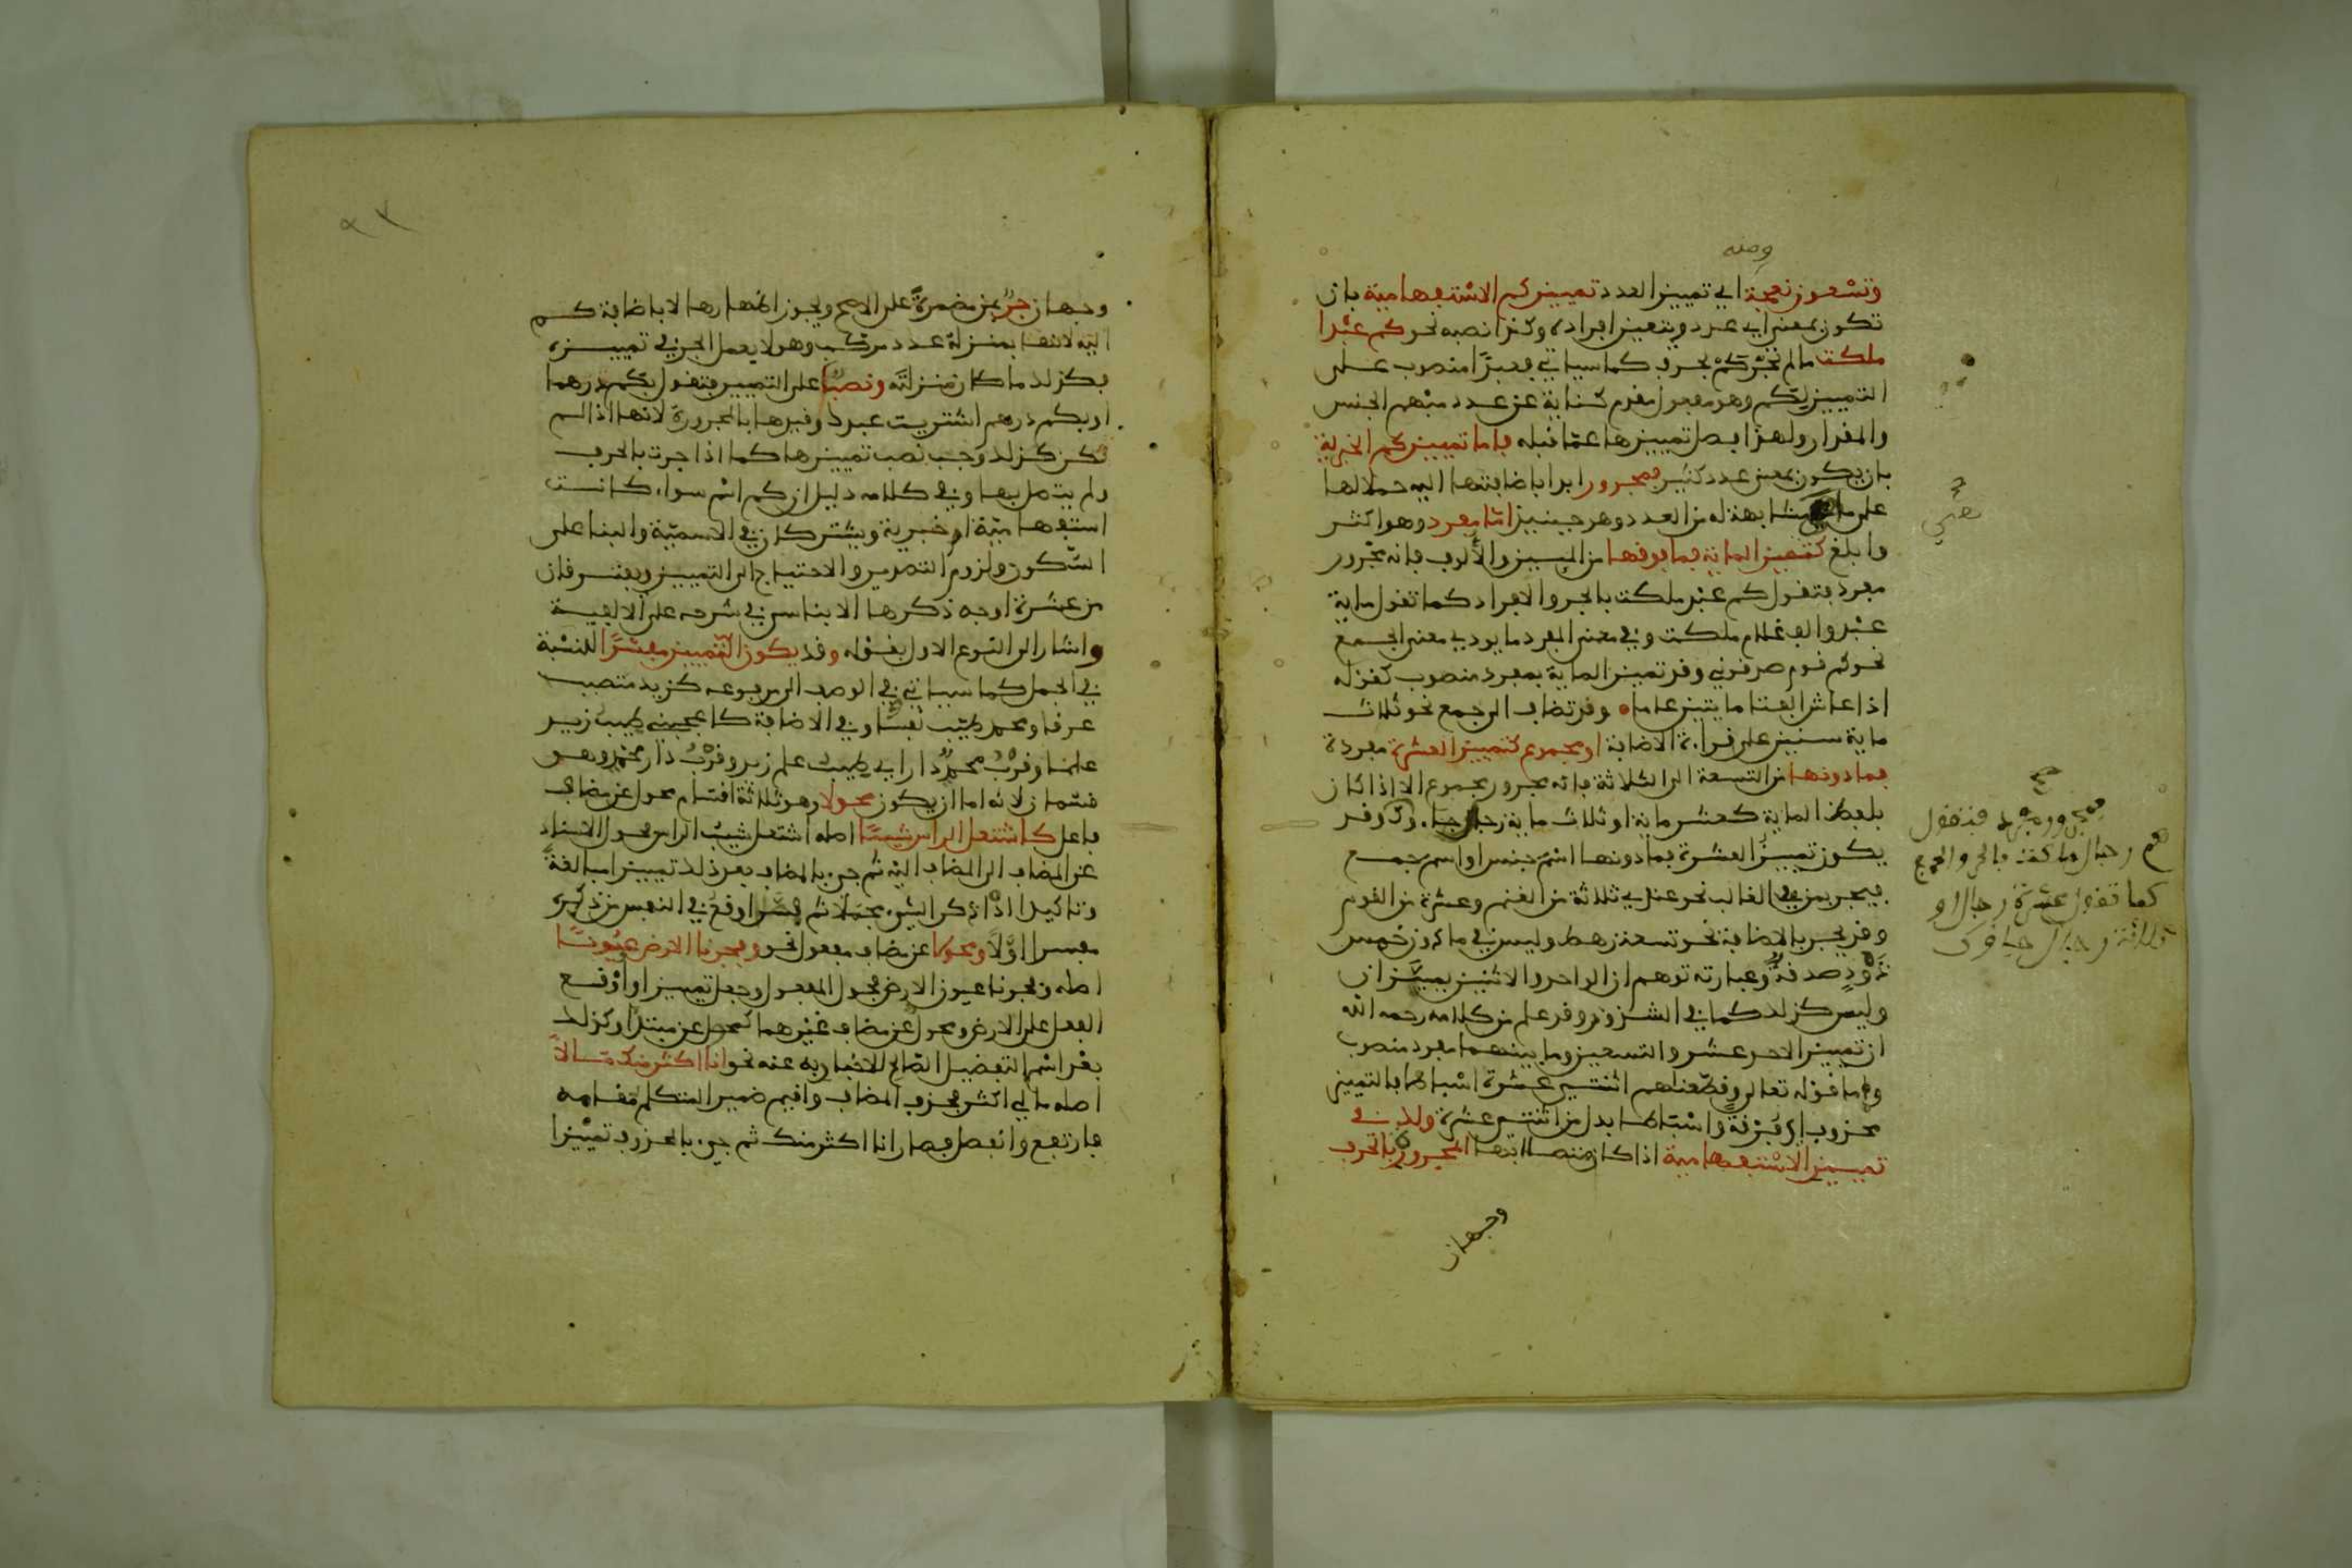 ومنه
وتسعون نعجة اي تمييز العدد تمييز كم الاستفهامية بان
تكون بمعنى اي عدد ويتعين افراده وكذا نصبه نحو كم عبدا
ملكت ما لم تجر كم بحرف كما سياتي فعبدًا منصوب على
التمييز لكم وهو مفعول مقدم كناية عن عدد مبهم الجنس
والمقدار ولهذا فصل تمييزها عما قبله فاما تمييز كم الخبرية
بان يكون بمعنى عدد كثير فمجرور ابدا باضافتها اليه حملا لها
على ما هي مشابهة له من العدد وهو حينئذ اما مفرد وهو اكثر
وابلغ كتمييز الماية فما فوقها من الميين والألوف فانه مجرور
مفرد فتقول كم عبد ملكت بالجر والافراد كما تقول ماية
عبد والف غلام ملكت وفي معنى المفرد ما يودي معنى الجمع
نحو كم قوم صدقوني وقد تميز الماية بمفرد منصوب كقوله
اذا عاش الفتا مايتين عاما وقد تضاف الى جمع نحو ثلاث
ماية سنين على قراءة الاضافة او مجموع كتمييز العشرة مفردة
فما دونها من التسعة الى الثلاثة فانه مجرور مجموع الا اذا كان
بلفظ الماية كعشر ماية او ثلاث ماية رجال جاءوك وقد
يكون تمييز العشرة فما دونها اسم جنس او اسم جمع
فيجر بمن في الغالب نحو عندي ثلاثة من الغنم وعشرة من القوم
وقد يجر بالاضافة نحو تسعة رهط وليس في ما دون خمس
ذود صدقة وعبارته توهم ان الواحد والاثنين يميزان
وليس كذلك كما في الشذور وقد علم من كلامه رحمه الله
ان تمييز الاحد عشر والتسعين وما بينهما مفرد منصوب
واما قوله تعالى وقطعناهم اثنتي عشرة اسباطا فالتمييز
محذوف اي فرقة واسباطا بدل من اثنتي عشرة ولك في
تمييز الاستفهامية اذا كان متصلا بها المجرورة بالحرف
وجهان
صح
فمجرور مجموع فتقول
كم رجال ملكت بالجر والجمع
كما تقول عشرة رجال او
ثلاثة رجال جاءوك
وجهان جر بمن مضمرة على الاصح ويجوز اظهارها لا باضافة كم
اليه لانها بمنزلة عدد مركب وهو لا يعمل الجر في تمييزه
فكذلك ما كان بمنزلته ونصب على التمييز فتقول بكم درهما
او بكم درهم اشتريت عبدك وقيدها بالمجرورة لانها اذا لم
تكن كذلك وجب نصب تمييزها كما اذا جرت بالحرف
ولم يتصل بها وفي كلامه دليل ان كم اسم سواء كانت
استفهامية او خبرية ويشتركان في الاسمية والبنا على
السكون ولزوم التصدير والاحتياج الى التمييز ويفترقان
من عشرة اوجه ذكرها الابناسي في شرحه على الالفية
واشار الى النوع الاول بقوله وقد يكون التمييز مفسرًا للنسبة
في الجمل كما سياتي في الوصف الى مرفوعه كزيد متصبب
عرقا ومحمد طيب نفسا وفي الاضافة كاعجبني طيب زيد
علما وقرب محمد دارا اي طيب علم زيد وقرب دار محمد وهو
قسمان لانه اما ان يكون محولا وهو ثلاثة اقسام محول عن مضاف
فاعل كاشتعل الراس شيبًا اصله اشتعل شيب الراس فحول الاسناد
عن المضاف الى المضاف اليه ثم جيء بالمضاف بعد ذلك تمييزا مبالغة
وتاكيدا اذ ذكر الشيء مجملا ثم مفسرا اوقع في النفس من ذكره
مفسرا اولًا ومحولا عن مضاف مفعول نحو وفجرنا الارض عيونًا
اصله وفجرنا عيون الارض فحول المفعول وجعل تمييزا واوقع
الفعل على الارض ومحول عن مضاف غيرهما كمحول عن مبتدا وكذلك
بعد اسم التفضيل الصالح للاخبار به عنه نحو انا اكثر منك مالًا
اصله مالي اكثر فحذف المضاف واقيم ضمير المتكلم مقامه
فارتفع وانفصل فصار انا اكثر منك ثم جيء بالمحذوف تمييزا